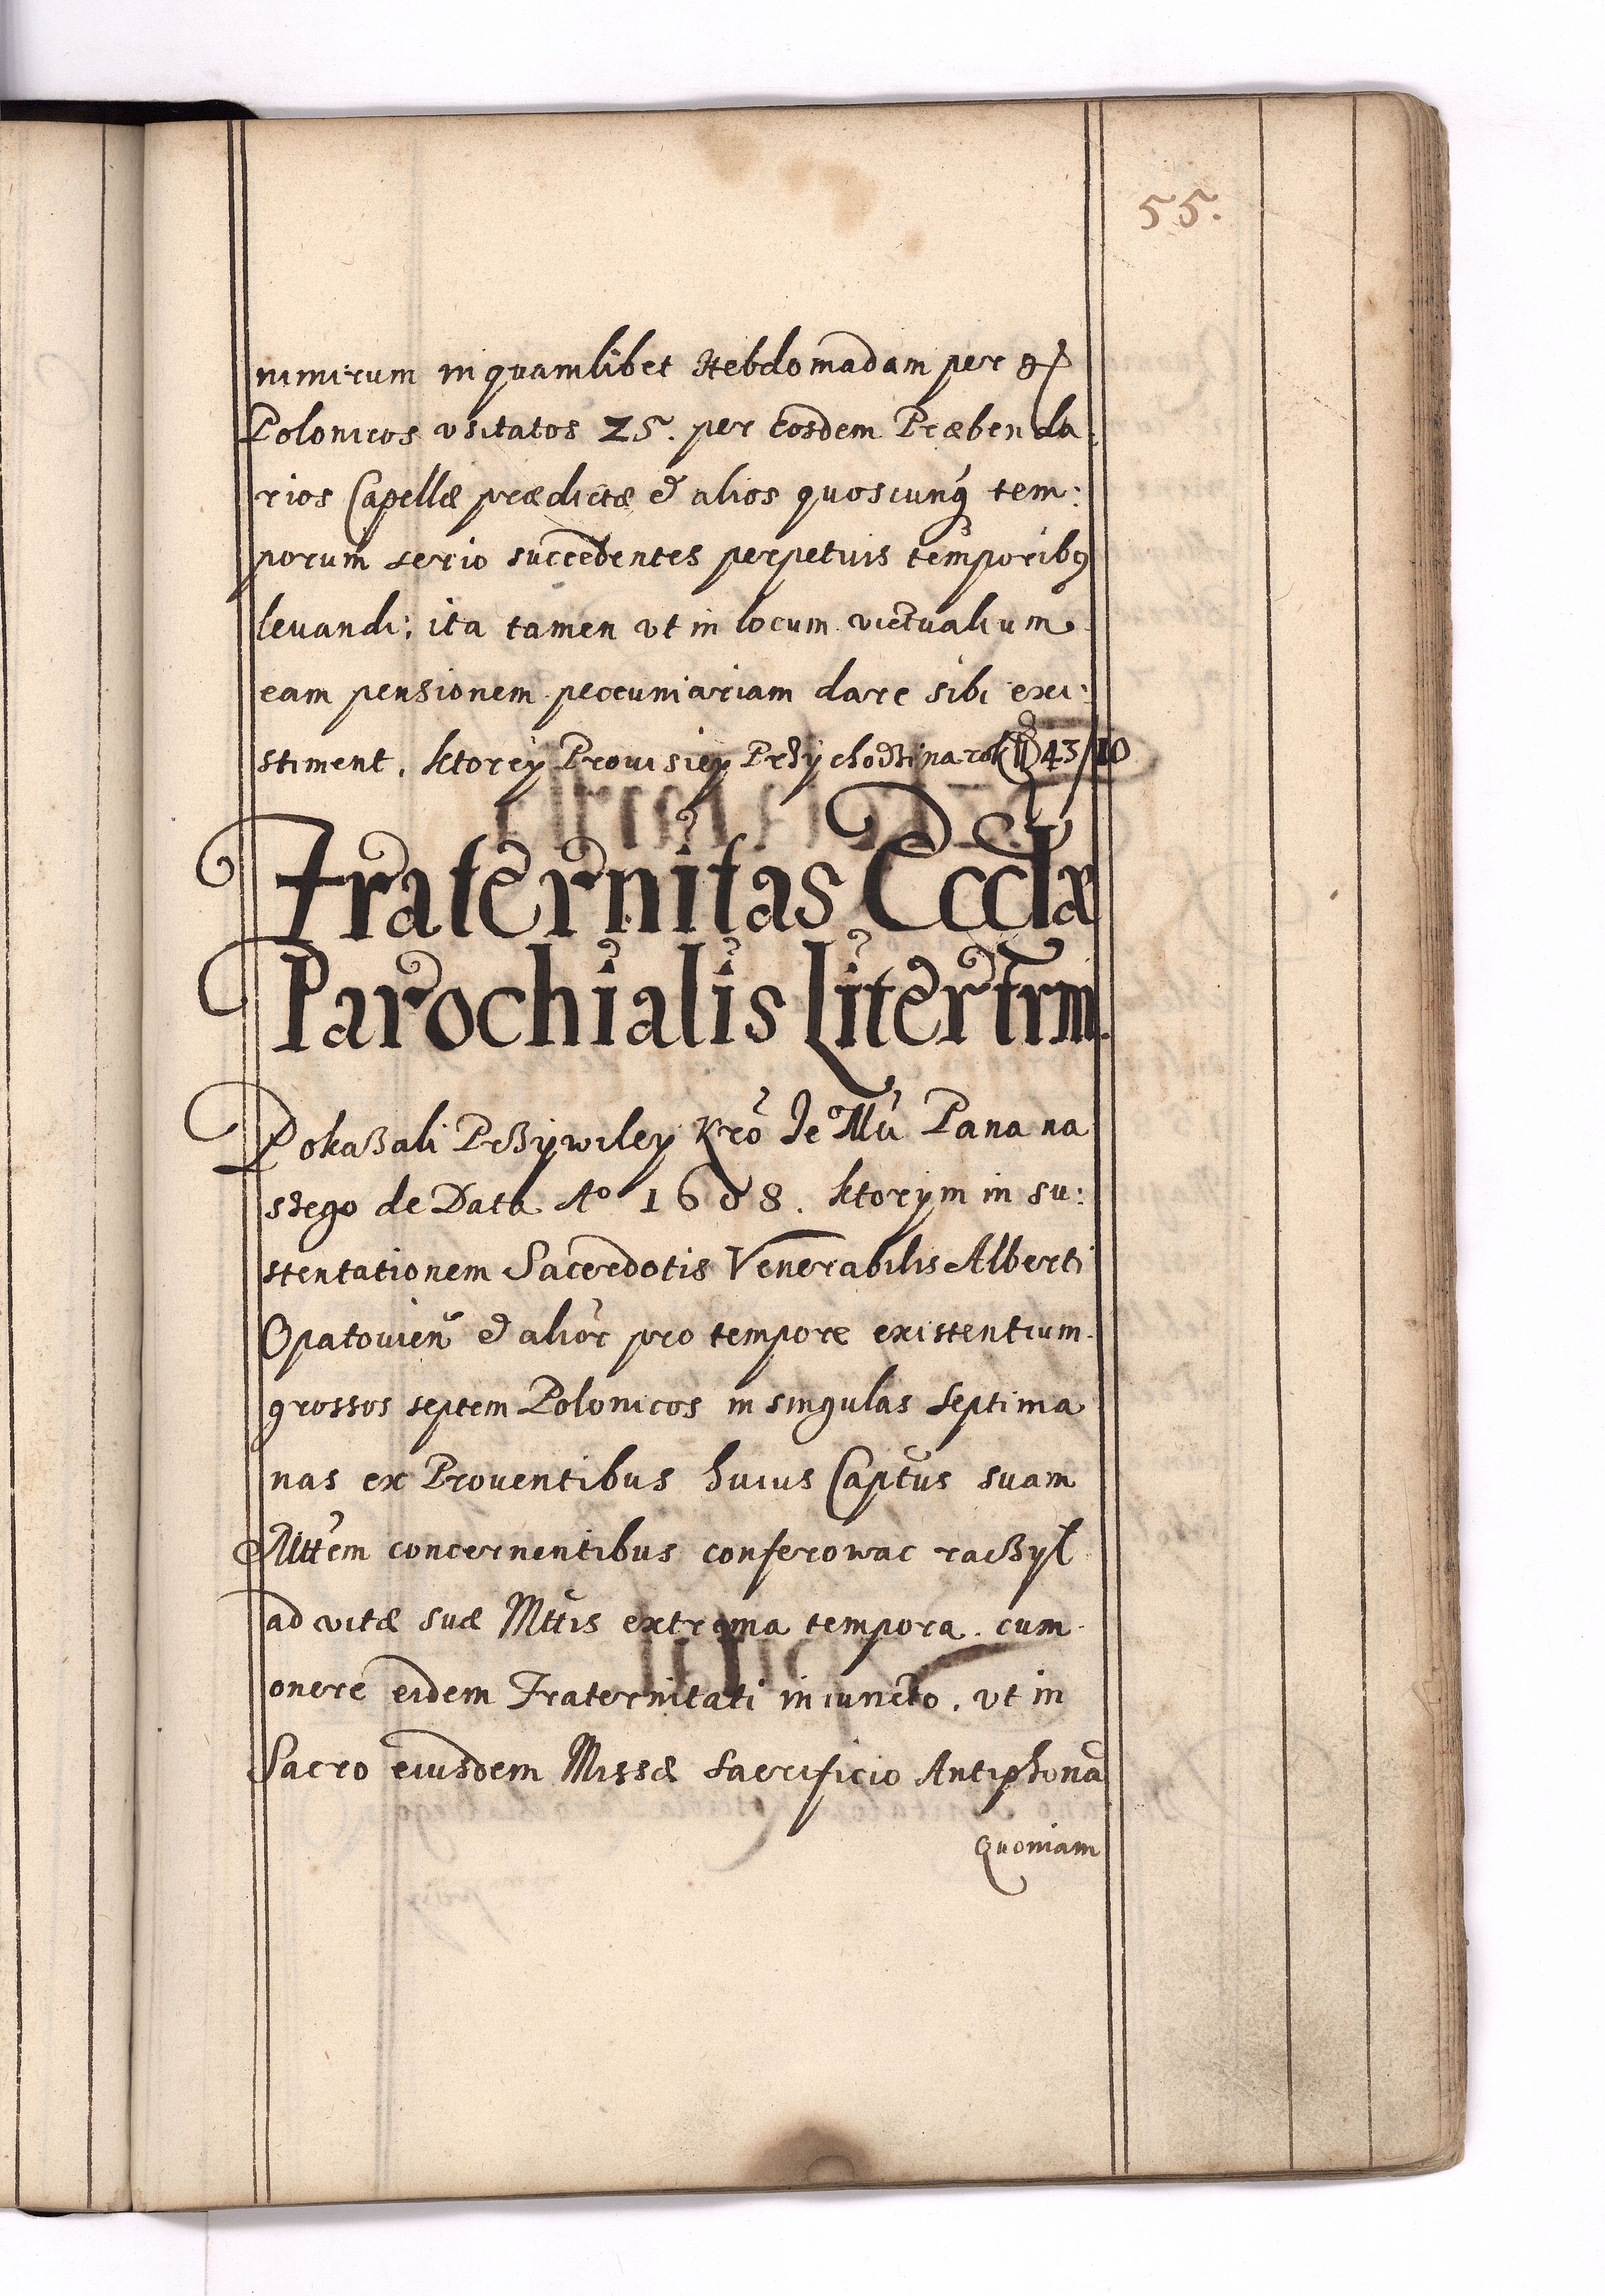 55.
nimirum in quamlibet Hebdomadam per gr
Polonicos vsitatos 25. per Eosdem Præbenda:
rios Capellæ prædictæ et alios quoscunq tem:
porum serio succedentes perpetuis temporibꝯ
levandi: ita tamen vt in locum victualium
eam pensionem peccuniariam dare sibi exi:
stiment. ktorey Prouisiey Przychodzi na rok 43/10
Fraternitas Ecclæ
Parochialis Litertrm.
Pokaßali Prßywiley Kro Je° Mu Pana na
szego de Data A° 1608. ktorym in su:
stentationem Sacerdotis Venerabilis Alberti
Opatouien et alior pro tempore existentium
grossos septem Polonicos in singulas septima
nas ex Prouentibus huius Captus suam
Mttem concernentibus conferowac racßył
ad vitæ suæ Mttis extrema tempora. cum
onere eidem Fraternitati iniuncto. vt in
Sacro eiusdem Missæ sacrificio Antiphonã
Quoniam